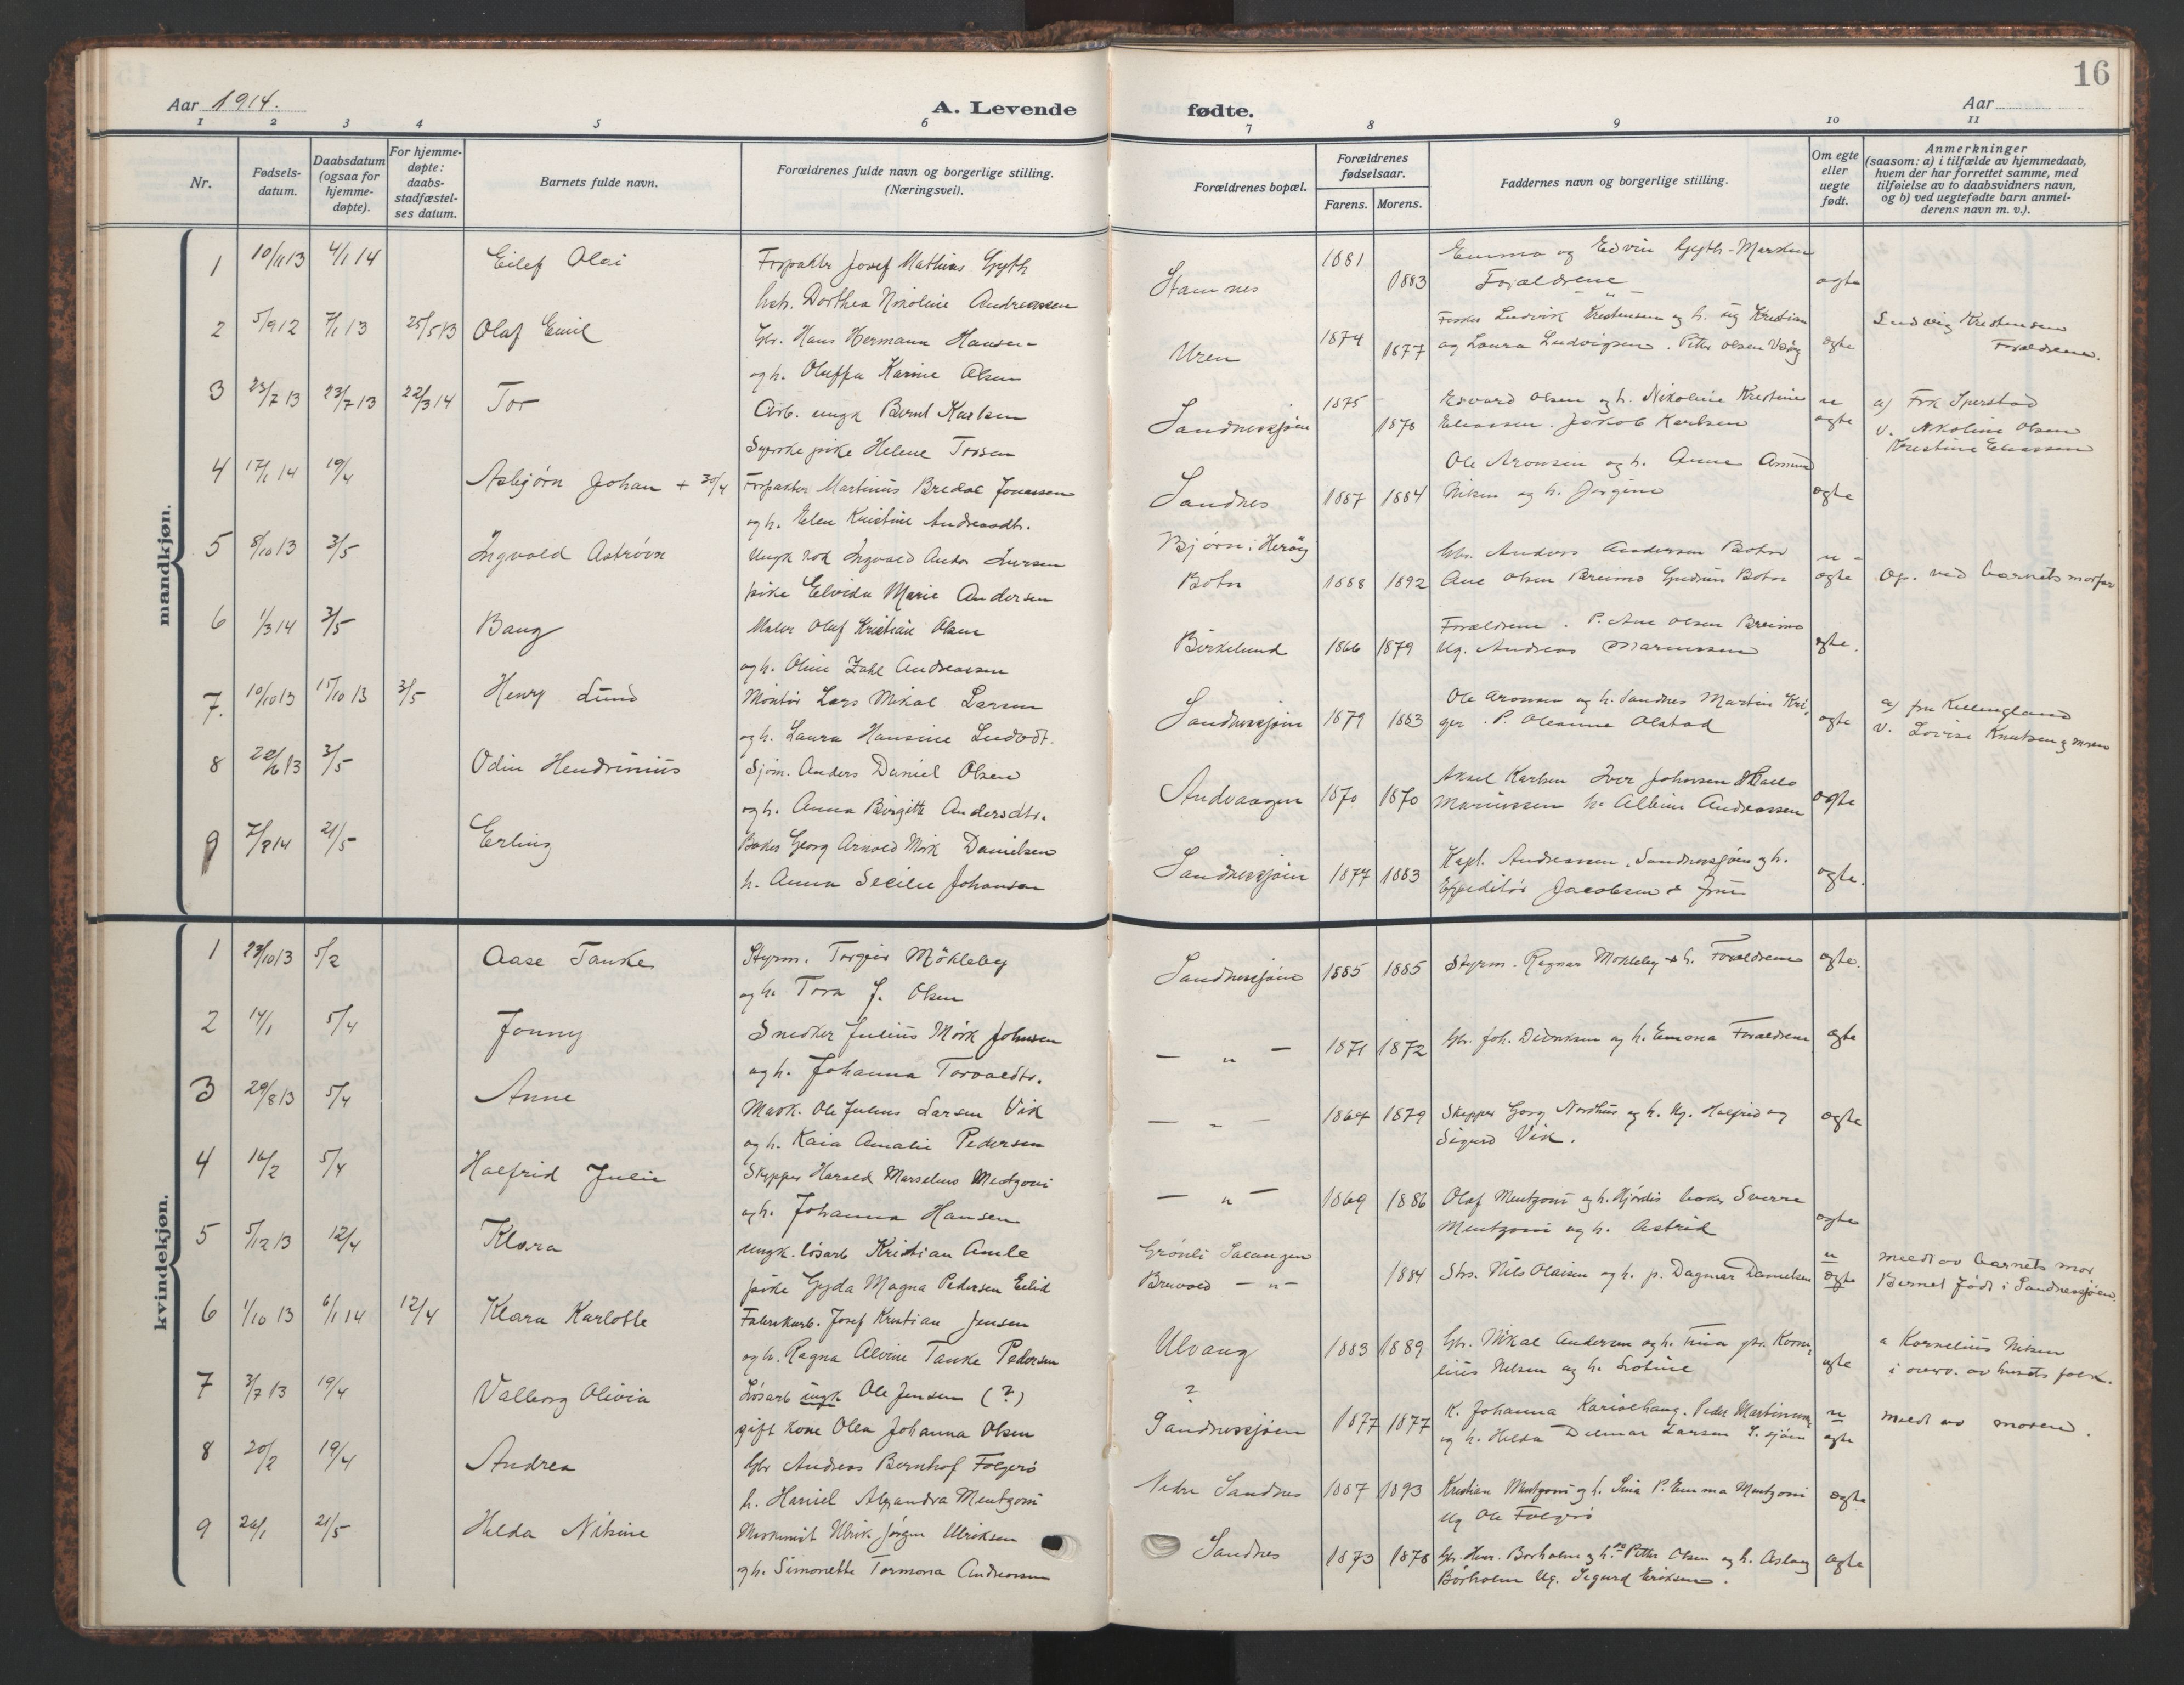 16
Aar 1914.
A. Levende fødte.
Aar
1 2 3 4 5 6 7 8 9 10 11
Nr.
Fødsels-datum.
Daabsdatum (ogsaa for hjemme-døpte).
For hjemme-døpte: daabs-stadfæstel-ses datum.
Barnets fulde navn.
Forældrenes fulde navn og borgerlige stilling. (Næringsvei).
Forældrenes bopæl.
Forældrenes fødselsaar.
Farens. Morens.
Faddernes navn og borgerlige stilling.
Om egte eller uegte født.
Anmerkninger (saasom: a) i tilfælde av hjemmedaab, hvem der har forrettet samme, med tilføielse av to daabsvidners navn, og b) ved uegtefødte barn anmelderens navn m. v.).
mandkjøn.
1 10/11 13 4/1 14 Eilef Olai Forpakter Josef Mathias Gyth Stamnes 1881 Emma og Edvin Gyth-Marsten
hstr. Dorthea Nikoline Andreassen 1883 Forældrene egte
2 5/9 12 7/1 13 25/5 13 Olaf Emil Gbr. Hans Hermann Hansen Uren 1874 Fisker Ludvik Kristensen og h. Ug Kristian Ludvig Kristensen
og h. Oluffa Karine Olsen 1877 og Laura Ludvigsen. Petter Olsen egte Forældrene.
3 23/7 13 23/7 13 22/3 14 Tor Arb. ungk Bernt Karlsen Sandnessjøen 1875 Edvard Olsen og h. Nikoline Kristine u a) Frk Sperstad
Syerske pike Helene Tosen 1878 Eliassen. Jakob Karlsen egte v. Nikoline Olsen
Kristine Eliassen
4 17/1 14 19/4 Asbjørn Johan + 30/4 Forpakter Martinus Bredal Jonassen Sandnes 1887 1884 Ole Aronsen og h. Anne
og h. Elen Kristine Andreasdtr. Nilsen og h. Jørgine egte
5 8/10 13 3/5 Ingvald Aströvn Ungk Ingvald Anton Iversen Bjørn i Herøy Gbr. Anders Andersen Botn u -
pike Elvida Marie Andersen Botn 1888 1892 Ane Olsen Breimo Gudrun Botn egte Op. ved barnets morfar
6 1/3 14 3/5 Bang Maler Olaf Kristian Olsen Birkelund 1866 1879 Forældrene. P. Ane Olsen Breimo
og h. Oline Zahl Andreassen Ug. Andreas Marinussen egte.
7. 10/10 13 15/10 13 3/5 Henry Lund Montør Lars Mikal Larsen Sandnessjøen 1879 1883 Ole Aronsen og h. Sandnes Martin Krü- a) fru Killengland
og h. Laura Hansine Ludvdt. ger. P. Oleanna Olstad egte v. Lovise Knutsen g moren
8 22/ 13 3/5 Odin Hendrinius Sjøm. Anders Daniel Olsen Andvaagen 1870 1870 Aksel Karlsen Iver Johansen
og h. Anna Birgitte Andersdtr. Marinussen h. Albine Andreassen egte
9 7/ 14 21/5 Erling Baker Georg Arnold Mørk Danielsen Sandnessjøen 1877 1883 Kapt. Andreassen, Sandnessjøen og h.
h. Anna Secilie Johansen Expeditør Jacobsen & frue egte.
kvindekjøn.
1 23/10 13 5/2 Aase Tanke Styrm. Torgeir Mökleby Sandnessjøen 1885 1885 Styrm. Ragnar Mökleby & h. Forældrene egte.
og h. Tora J. Olsen
2 14/1 5/4 Jonny Snedker Julius Mörk Johnsen — „ — 1871 1872 Gbr. Joh. Didriksen og h. Emma Forældrene egte
og h. Johanna Torvaldtr.
3 29/8 13 5/4 Anne Mask. Ole Julius Larsen Vik — „ — 1864 1879 Skipper Georg Nordhus og h. Ug. Halfrid og egte
og h. Kaia Amalie Pedersen Sigurd Vik.
4 16/2 5/4 Halfrid Julie Skipper Harald Marselius Mentzoni — „ — 1869 1886 Olaf Mentzoni og h. Hjørdis baker Sverre
og h. Johanna Hansen Mentzoni og h. Astrid egte
5 5/12 13 12/4 Klara ungk. løsarb Kristian Amle Grönli Salangen u meldt av barnets mor
pike Gyda Magna Pedersen Eelid Bruvold — „ — 1884 Nils Olaisen og h. p. Dagmar Danielsen egte Barnet født i Sandnessjøen
6 1/10 13 6/1 14 12/4 Klara Karlotte Fabrikarb. Josef Kristian Jensen Ulvang 1883 1889 Gbr. Mikal Andersen og h. Trina gbr. Korne- a Kornelius Nilsen
og h. Ragna Alvine Tanke Pedersen lius Nilsen og h. egte i overv. av husets folk.
7 3/7 13 19/4 Valborg Olivia Løsarb ungk Ole Jensen (?) ? K. Johanna Karielhaug. Peder u meldt av moren.
gift kone Olea Johanna Olsen Sandnessjøen 1877 1877 og h. Hilda Dilmar Larsen S.sjøen egte
8 20/2 19/4 Andrea Gbr Andreas Bernhof Folgerö Nedre Sandnes 1887 1893 Kristian Mentzoni og h. Sina P. Emma Mentzoni egte
h. Alexandra Mentzoni Ug Ole Folgerö
9 26/1 21/5 Hilda Nikine Ulrik Jørgen Ulriksen Sandnes 1873 1878 Gbr. Borholm og h. Petter Olsen og h. Aslaug egte
og h. Simonette Tormona Andreassen Borholm Ug. Sigurd Eriksen.